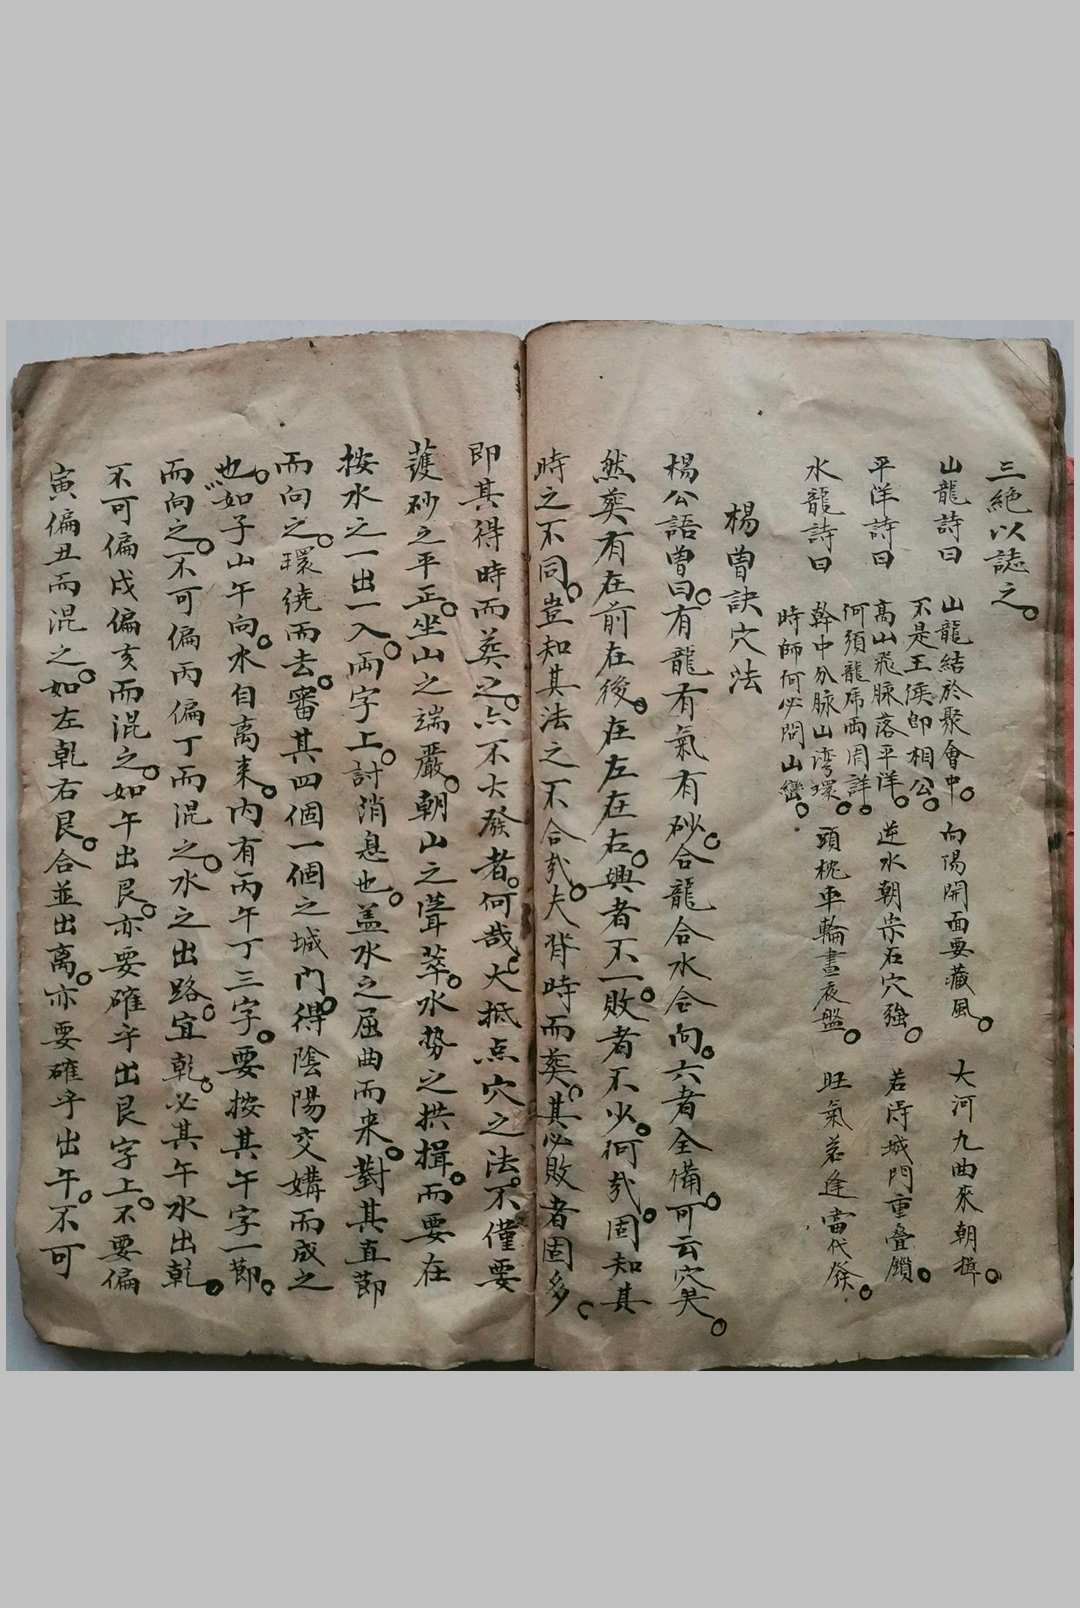 三絕以誌之。
山龍詩曰 山龍結於聚會中。向陽開面要藏風。大河九曲來朝揖。
不是王侯即相公。
平洋詩曰 高山飛脉落平洋。逆水朝崇石穴強。若得城門重叠鎖。
何須龍虎両周詳。
水龍詩曰 幹中分脉山湾環。頭枕車輪畫衣盤。旺氣若逢當代發。
時師何必問山巒。
楊曾訣穴法
楊公語曾曰。有龍有氣有砂。合龍合水合向。六者全備。可云穴矣。
然葬有在前在後。在左在右。興者不一。敗者不少。何㢤。固知其
時之不同。豈知其法之不合㢤。夫背時而葬。其必敗者固多。
即其得時而葬之。亦不大發者。何哉。大抵点穴之法。不僅要
護砂之平正。坐山之端嚴。朝山之葺萃。水势之拱揖。而要在
按水之一出一入。両字上。討消息也。盖水之屈曲而来。對其直節
而向之。環繞而去。審其四個一個之城門。得陰陽交媾而成之
也。如子山午向。水自离来。内有丙午丁三字。要按其午字一節。
而向之。不可偏丙偏丁而混之。水之出路。宜乾。必其午水出乾。
不可偏戌偏亥而混之。如午出艮。亦要確乎出艮字上。不要偏
寅偏丑而混之。如左乾右艮。合並出离。亦要確乎出午。不可